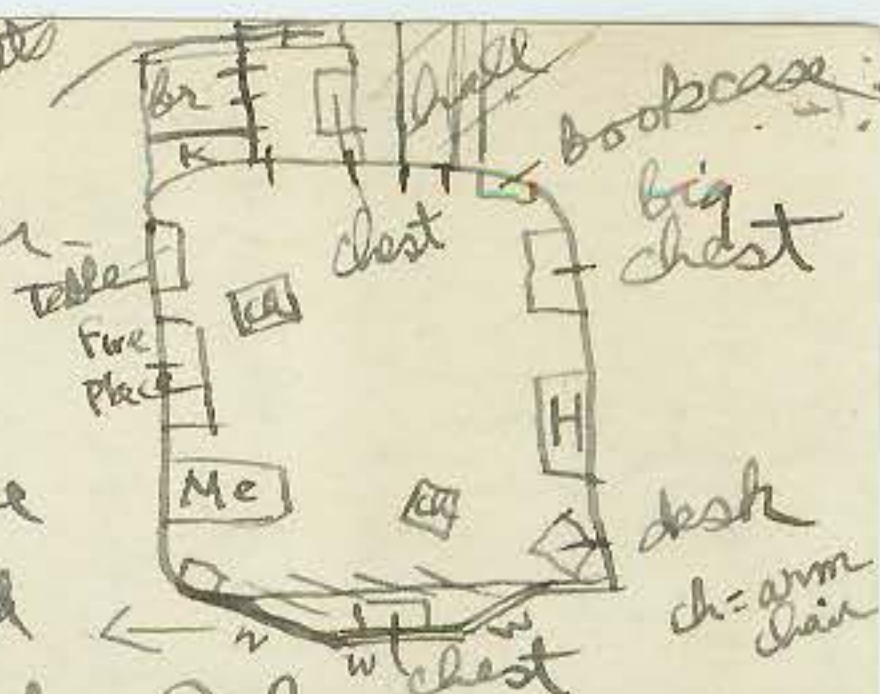 hall
Bookcase
br
K
big
chest
chest
Table
ch
Fire
Place
H
Me
ch
desk
ch = arm
chair
w
w
chest